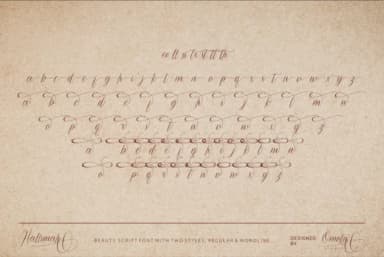 a b c d e f g h i j k l m n o p q r s t u v w x y z
a b c d e f g h i j k l m n
o p q r s t u v w x y z
a b c d e f g h i j k l m n
o p q r s t u v w x y z
BEAUTY SCRIPT FONT WITH TWO STYLES, REGULAR & MONOLINE
DESIGNED
BY